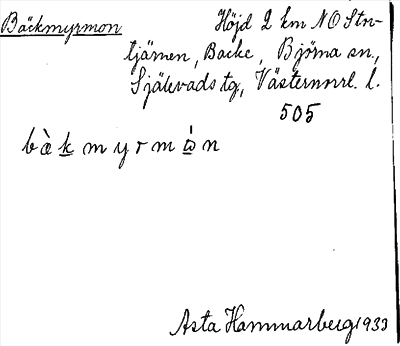 Backmyrmon Höjd 2 km NO Stor-
tjärnen, Backe, Björna sn,
Själevads tg, Västernorrl. l.
505
bὰk̲myrmὼ̲n
Asta Hammarberg 1933